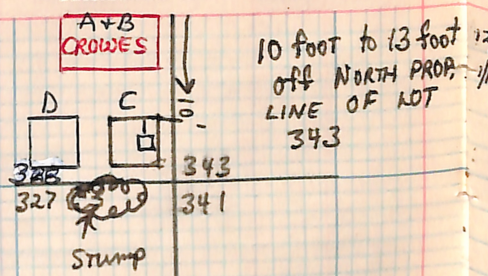 A+B
CROWES
10 foot to 13 foot
off NORTH PROP.
LINE OF LOT
343
D
C
10'
343
327
341
Stump